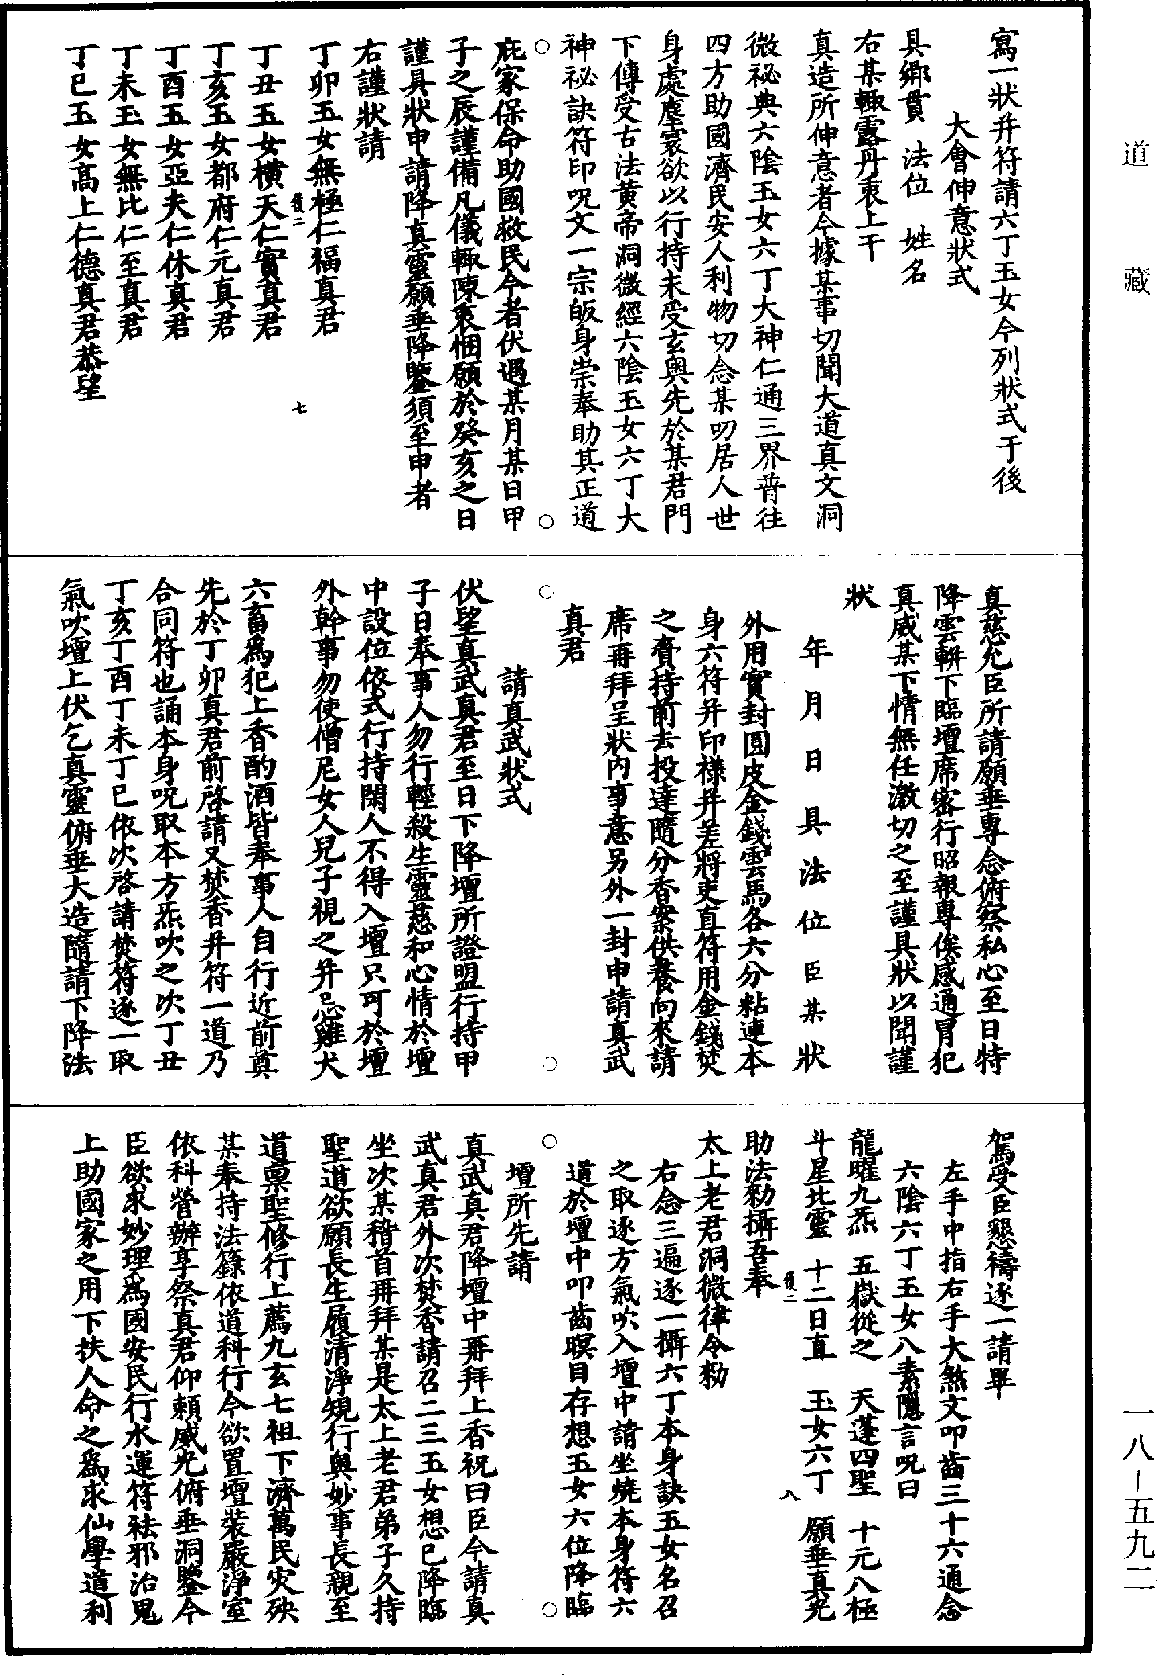 道藏
寫一狀幷符請六丁玉女今列狀式于後
大會伸意狀式
具鄉貫　法位　姓名
右某輙露丹衷上干
真造所伸意者今據某事切聞大道真文洞
微祕典六陰玉女六丁大神仁通三界普往
四方助國濟民安人利物切念某叨居人世
身處塵寰欲以行持未受玄奧先於某君門
下傳受古法黃帝洞微經六陰玉女六丁大
神祕訣符印呪文一宗皈身崇奉助其正道
庇家保命助國救民今者伏遇某月某日甲
子之辰謹備凡儀輙陳衷悃願於癸亥之日
謹具狀申請降真靈願垂降鑒須至申者
右謹狀請
丁卯玉女無極仁福真君
丁丑玉女橫天仁實真君
七
丁亥玉女都府仁元真君
丁酉玉女亞夫仁休真君
丁未玉女無比仁至真君
丁巳玉女高上仁德真君恭望
真慈允臣所請願垂專念俯察私心至日特
降雲輧下臨壇席密行昭報專俟感通冒犯
真威某下情無任激切之至謹具狀以聞謹
狀
年月日具法位臣某狀
外用實封圓皮金錢雲馬各六分粘連本
身六符幷印樣幷差將吏直符用金錢焚
之賫持前去投達隨分香案供養向來請
席再拜呈狀內事意另外一封申請真武
真君
請真武狀式
伏望真武真君至日下降壇所證盟行持甲
子日奉事人勿行輕殺生靈慈和心情於壇
中設位依式行持閑人不得入壇只可於壇
外幹事勿使僧尼女人兒子視之幷忌雞犬
六畜為犯上香酌酒皆奉事人自行近前奠
先於丁卯真君前啓請又焚香幷符一道乃
合同符也誦本身呪取本方炁吹之次丁丑
丁亥丁酉丁未丁巳依次啓請焚符逐一取
氣吹壇上伏乞真靈俯垂大造隨請下降法
駕受臣懇禱逐一請畢
左手中指右手大煞文叩齒三十六通念
六陰六丁玉女八素隱言呪曰
龍曜九炁　五嶽從之　天蓬四聖　十元八極
斗星北靈　十二日直　玉女六丁　願垂真光
八
助法勑攝吾奉
太上老君洞微律令勑
右念三遍逐一攝六丁本身訣五女名召
之取逐方氣吹入壇中請坐燒本身符六
道於壇中叩齒暝目存想玉女六位降臨
壇所先請
真武真君降壇中再拜上香祝曰臣今請真
武真君外次焚香請召二三玉女想已降臨
坐次某稽首再拜某是太上老君弟子久持
聖道欲願長生履清淨䂓行與妙事長親至
道稟聖修行上薦九玄七祖下濟萬民灾殃
某奉持法籙依道科行今欲置壇裝嚴淨室
依科營辦享祭真君仰賴威光俯垂洞鑒今
臣欲求妙理為國安民行水運符祛邪治鬼
上助國家之用下扶人命之為求仙學道利
一八－五九二